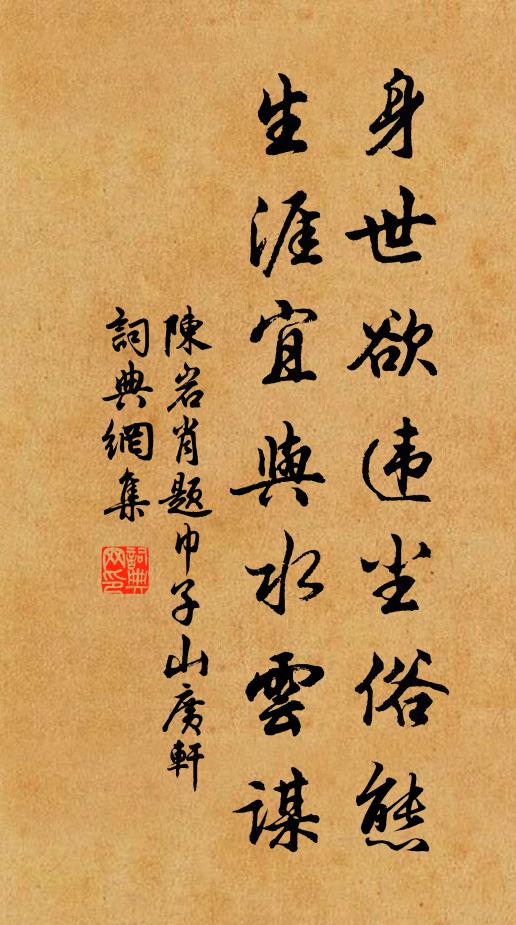 身世欲违尘俗態
生涯宜與水雲謀
陳岩肖題巾子山廣軒
詞典網集
詞典網印